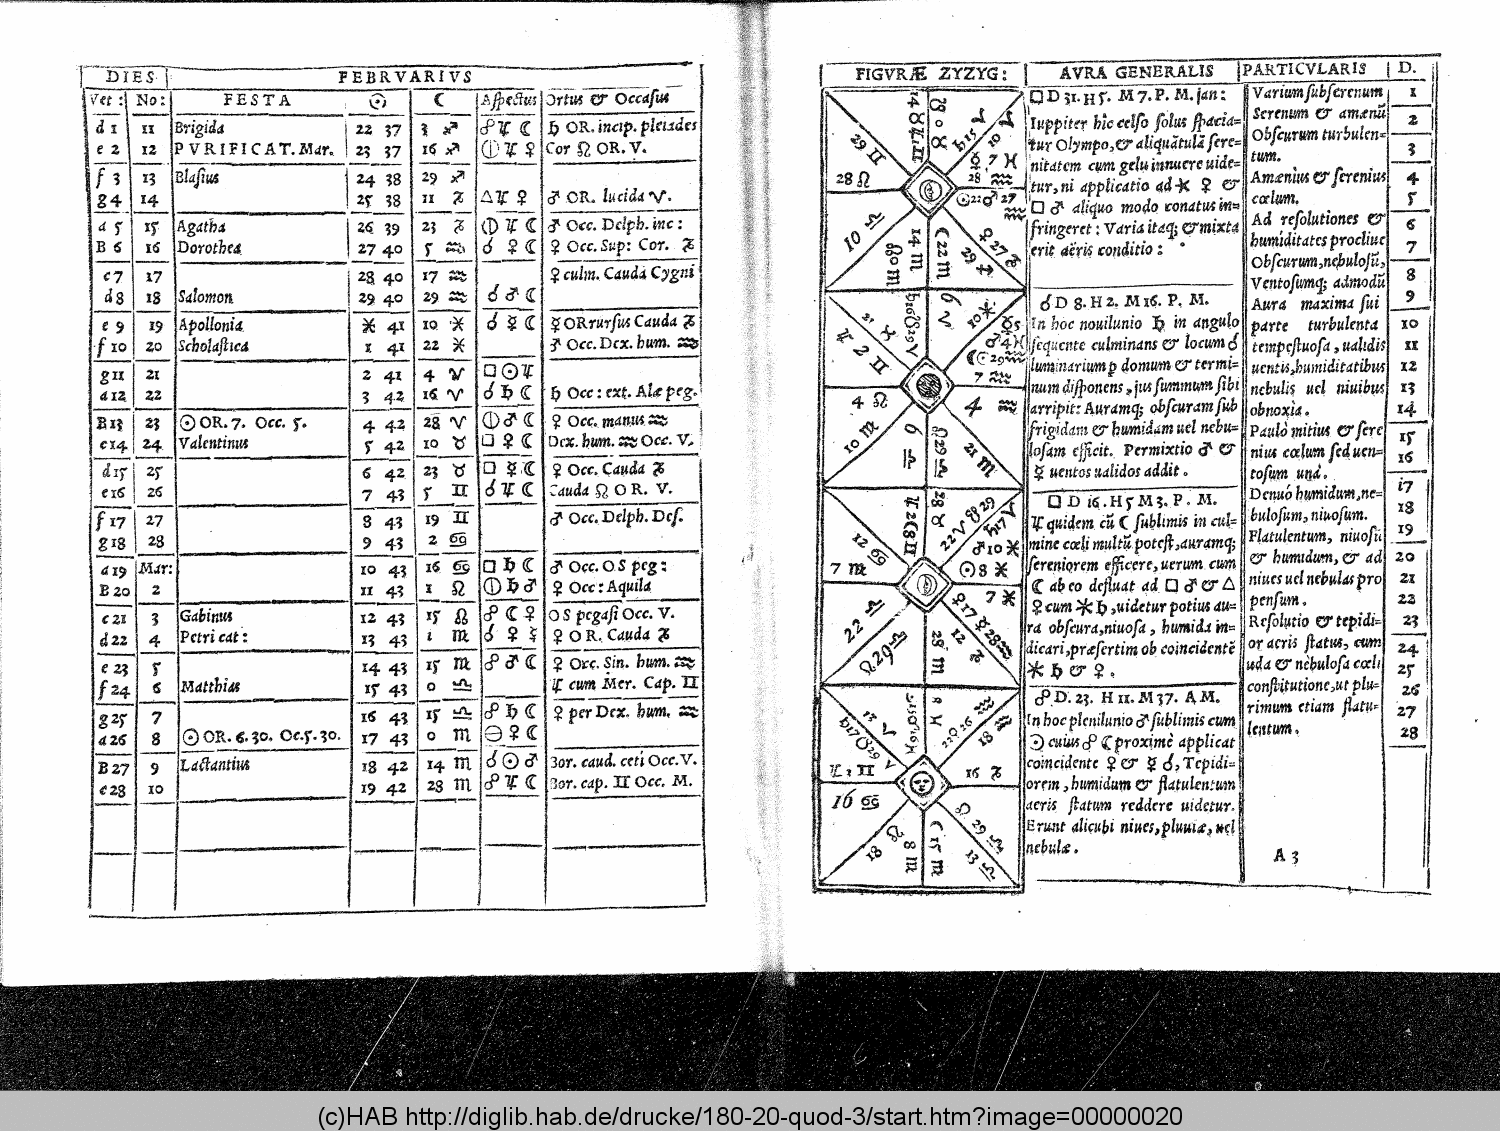 DIES FEBRVARIVS
Vet: No: FESTA ☉ ☾ Aspectus Ortus & Occasus
d 1 11 Brigida 22 37 3 ♐ ☍ ♃ ☾ ♄ OR. incip. pleiades
e 2 12 PVRIFICAT. Mar. 23 37 16 ♐ ♃ ♀ Cor ♌ OR. V.
f 3 13 Blasius 24 38 29 ♐
g 4 14 25 38 11 ♑ △ ♃ ♀ ♂ OR. lucida ♈.
a 5 15 Agatha 26 39 23 ♑ ♃ ☾ ♂ Occ. Delph. inc:
B 6 16 Dorothea 27 40 5 ♒ ☌ ♀ ☾ ♀ Occ. Sup: Cor. ♑
c 7 17 28 40 17 ♒ ♀ culm. Cauda Cygni
d 8 18 Salomon 29 40 29 ♒ ☌ ♂ ☾
e 9 19 Apollonia ♓ 41 10 ♓ ☌ ☿ ☾ ☿ OR rursus Cauda ♑
f 10 20 Scholastica 1 41 22 ♓ ♂ Occ. Dex. hum. ♒
g 11 21 2 41 4 ♈ □ ☉ ♃
a 12 22 3 42 16 ♈ ☌ ♄ ☾ ♄ Occ: ext. Alæ peg.
B 13 23 ☉ OR. 7. Occ. 5. 4 42 28 ♈ ♂ ☾ ♀ Occ. manus ♒
c 14 24 Valentinus 5 42 10 ♉ □ ♀ ☾ Dex. hum. ♒ Occ. V.
d 15 25 6 42 23 ♉ □ ☿ ☾ ♀ Occ. Cauda ♑
e 16 26 7 43 5 ♊ ☌ ♃ ☾ Cauda ♌ OR. V.
f 17 27 8 43 19 ♊ ♂ Occ. Delph. Des.
g 18 28 9 43 2 ♋
a 19 Mar: 10 43 16 ♋ □ ♄ ☾ ♂ Occ. OS peg:
B 20 2 11 43 1 ♌ ♄ ♂ ♀ Occ: Aquila
c 21 3 Gabinus 12 43 15 ♌ ☍ ☾ ♀ OS pegasi Occ. V.
d 22 4 Petri cat: 13 43 i ♍ ☌ ♀ ☿ ♀ OR. Cauda ♑
e 23 5 14 43 15 ♍ ☍ ♂ ☾ ♀ Occ. Sin. hum. ♒
f 24 6 Matthias 15 43 0 ♎ ♃ cum Mer. Cap. ♊
g 25 7 16 43 15 ♎ ☍ ♄ ☾ ♀ per Dex. hum. ♒
a 26 8 ☉ OR. 6. 30. Oc. 5. 30. 17 43 0 ♏ ♀ ☾
B 27 9 Lactantius 18 42 14 ♏ ☌ ☉ ♂ Bor. caud. ceti Occ. V.
c 28 10 19 42 28 ♏ ☍ ♃ ☾ Bor. cap. ♊ Occ. M.
FIGVRÆ ZYZYG:
29 ♊
28 ♌
10 ♎
14 ♏
☾ 22 ♏
29 ♐
♀ 27 ♑
☿ 7 ♓
4 ♌
10 ♍
6 ♎
21 ♏
4 ♒
12 ♋
7 ♍
22 ♎
28 ♏
12 ♑
7 ♓
☉ 8 ♓
♂ 10 ♓
16 ♋
18
8 ♏
☾ 15 ♏
13 ♎
16 ♑
AVRA GENERALIS
□ D 31. H 5. M 7. P. M. Jan:
Iuppiter hic celso solus spacia=
tur Olympo, & aliquãtulã sere=
nitatem cum gelu innuere uide=
tur, ni applicatio ad ⚹ ♀ &
□ ♂ aliquo modo conatus in=
fringeret: Varia itaq; & mixta
erit aëris conditio:
☌ D 8. H 2. M 16. P. M.
In hoc nouilunio ♄ in angulo
sequente culminans & locum ☌
luminarium p domum & termi=
num disponens, jus summum sibi
arripit: Auramq; obscuram sub
frigidam & humidam uel nebu=
losam efficit. Permixtio ♂ &
☿ uentos ualidos addit.
□ D 16. H 5 M 3. P. M.
♃ quidem cũ ☾ sublimis in cul=
mine cœli multũ potest, auramq;
sereniorem efficere, uerum cum
☾ ab eo defluat ad □ ♂ & △
♀ cum ⚹ ♄, uidetur potius au=
ra obscura, niuosa, humida in=
dicari, præsertim ob coincidentẽ
⚹ ♄ & ♀.
☍ D. 23. H 11. M 37. A M.
In hoc plenilunio ♂ sublimis cum
☉ cuius ☍ ☾ proximè applicat
coincidente ♀ & ☿ ☌, Tepidi=
orem, humidum & flatulentum
aeris statum reddere uidetur.
Erunt alicubi niues, pluuiæ, uel
nebulæ.
PARTICVLARIS D.
Varium subserenum 1
Serenum & amænũ 2
Obscurum turbulen= 3
tum.
Amænius & serenius 4
cœlum. 5
Ad resolutiones & 6
humiditates procliue 7
Obscurum, nebulosũ,
Ventosumq; admodũ 8
Aura maxima sui 9
parte turbulenta 10
tempestuosa, ualidis 11
uentis, humiditatibus 12
nebulis uel niuibus 13
obnoxia. 14
Paulò mitius & sere 15
nius cœlum sed uen= 16
tosum unà.
Denuò humidum, ne= i7
bulosum, niuosum. 18
Flatulentum, niuosũ 19
& humidum, & ad 20
niues uel nebulas pro 21
pensum. 22
Resolutio & tepidi= 23
or aeris status, cum 24
uda & nebulosa cœli 25
constitutione, ut plu= 26
rimum etiam flatu= 27
lentum. 28
A 3
(c)HAB http://diglib.hab.de/drucke/180-20-quod-3/start.htm?image=00000020